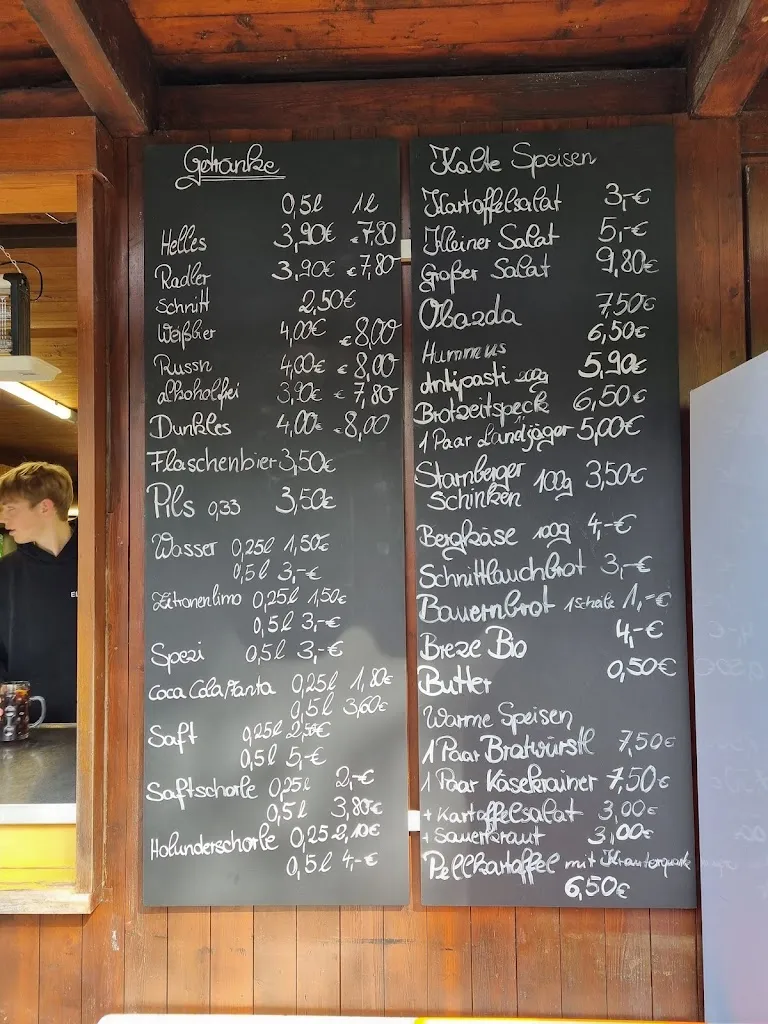 Getränke
0,5l 1l
Helles 3,90€ €7,80
Radler 3,90€ €7,80
Schnitt 2,50€
Weißbier 4,00€ €8,00
Russn 4,00€ €8,00
alkoholfrei 3,90€ €7,80
Dunkles 4,00€ €8,00
Flaschenbier 3,50€
Pils 0,33 3,50€
Wasser 0,25l 1,50€
0,5l 3,-€
Zitronenlimo 0,25l 1,50€
0,5l 3,-€
Spezi 0,5l 3,-€
Coca Cola/Fanta 0,25l 1,80€
0,5l 3,60€
Saft 0,25l 2,50€
0,5l 5,-€
Saftschorle 0,25l 2,-€
0,5l 3,80€
Holunderschorle 0,25 2,10€
0,5l 4,-€
Kalte Speisen
Kartoffelsalat 3,-€
Kleiner Salat 5,-€
großer Salat 9,80€
Obazda 7,50€
Hummus 6,50€
Antipasti 200g 5,90€
Brotzeitspeck 6,50€
1 Paar Landjäger 5,00€
Starnberger
Schinken 100g 3,50€
Bergkäse 100g 4,-€
Schnittlauchbrot 3,-€
Bauernbrot 1 Scheibe 1,-€
Breze Bio 4,-€
Butter 0,50€
Warme Speisen
1 Paar Bratwürstl 7,50€
1 Paar Käsekrainer 7,50€
+ Kartoffelsalat 3,00€
+ Sauerkraut 3,00€
Pellkartoffel mit Kräuterquark
6,50€